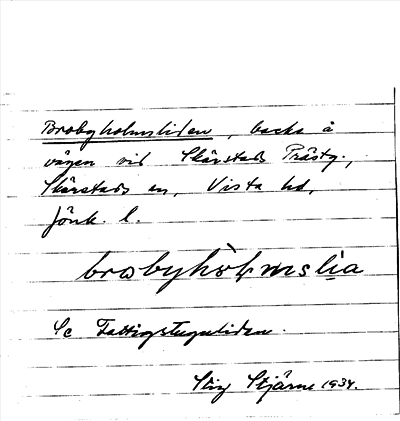 Brobyholmsliden, backe å
vägen vid Skärstads Prästg.,
Skärstads sn, Vista hd,
Jönk. l.
brobyhòłmslia
Se Fattigstugeliden.
Stig Stjärne 1934.